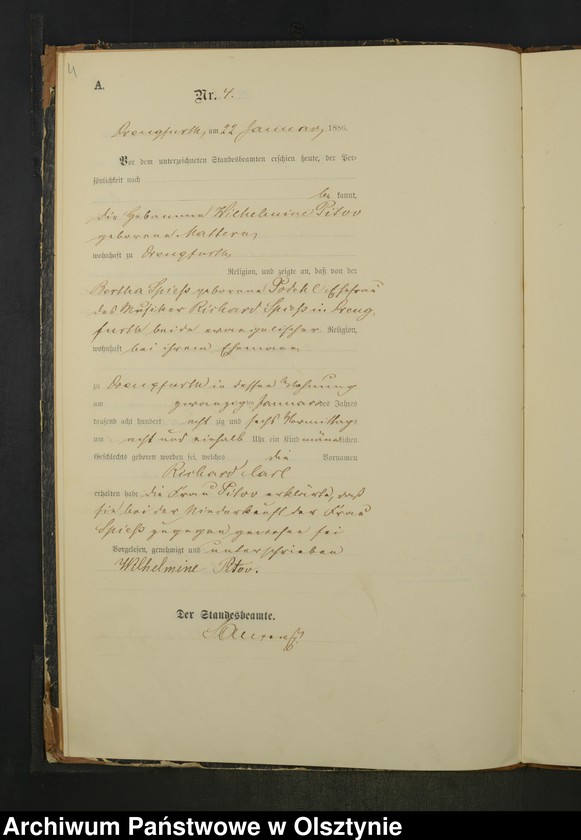 4
A.
Nr. 4.
Drengfurth, am 22 Januar, 1886.
Vor dem unterzeichneten Standesbeamten erschien heute, der Per-
sönlichkeit nach
be kannt,
die Hebamme Wilhelmine Pitov
geborene Mattern,
wohnhaft zu Drengfurth,
Religion, und zeigte an, daß von der
Bertha Spieß geborene Podehl Ehefrau
des Musiker Richard Spieß in Dreng
furth beide evangelischer Religion,
wohnhaft bei ihrem Ehemann
zu Drengfurth in dessen Wohnung
am zwanzigsten Januar des Jahres
tausend acht hundert acht zig und sechs Vormittags
um acht und einhalb Uhr ein Kind männlichen
Geschlechts geboren worden sei, welches die Vornamen
Richard Carl
erhalten habe die Frau Pitov erklärte, daß
sie bei der Niederkunft der Frau
Spieß zugegen gewesen sei
Vorgelesen, genehmigt und unterschrieben
Wilhelmine Pitov.
Der Standesbeamte.
Archiwum Państwowe w Olsztynie